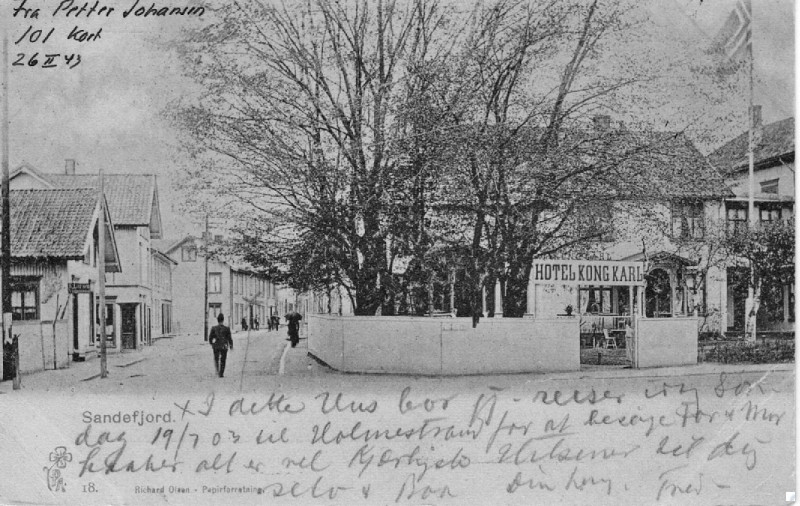 fra Petter Johansen
101 Kort
26 II 43
HOTEL KONG KARL
Sandefjord.
x I dette Hus bor jeg - reiser og Søn
dag 19/7 03 til Holmestrand for at besøge Far & Mor
haaber alt er vel Kjærligste Hilsener til dig
selv & Baa Din heng. Fred-
18. Richard Olsen. - Papirforretning.